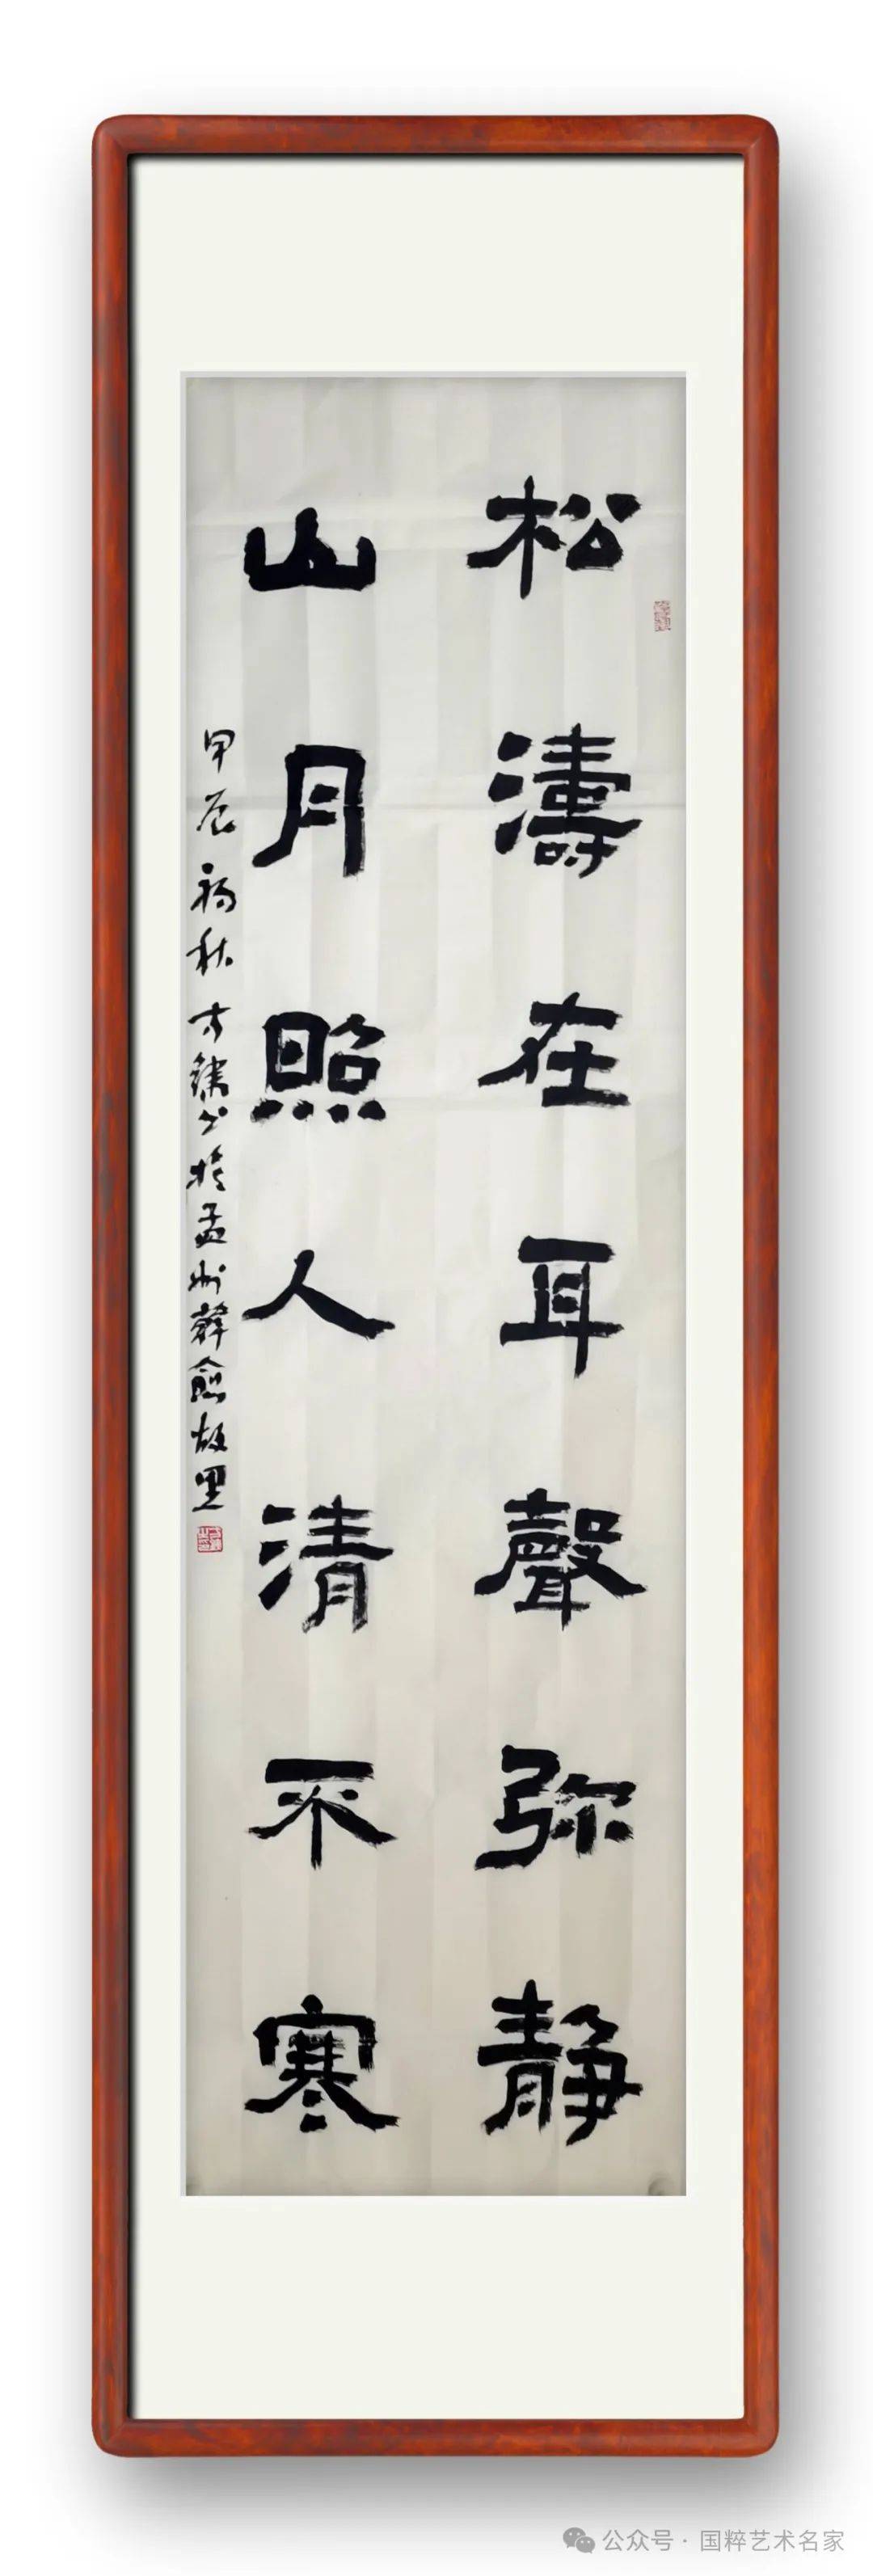 松濤在耳聲弥静
山月照人清不寒
甲辰初秋方鏽书於孟州韓愈故里
公众号 · 国粹艺术名家